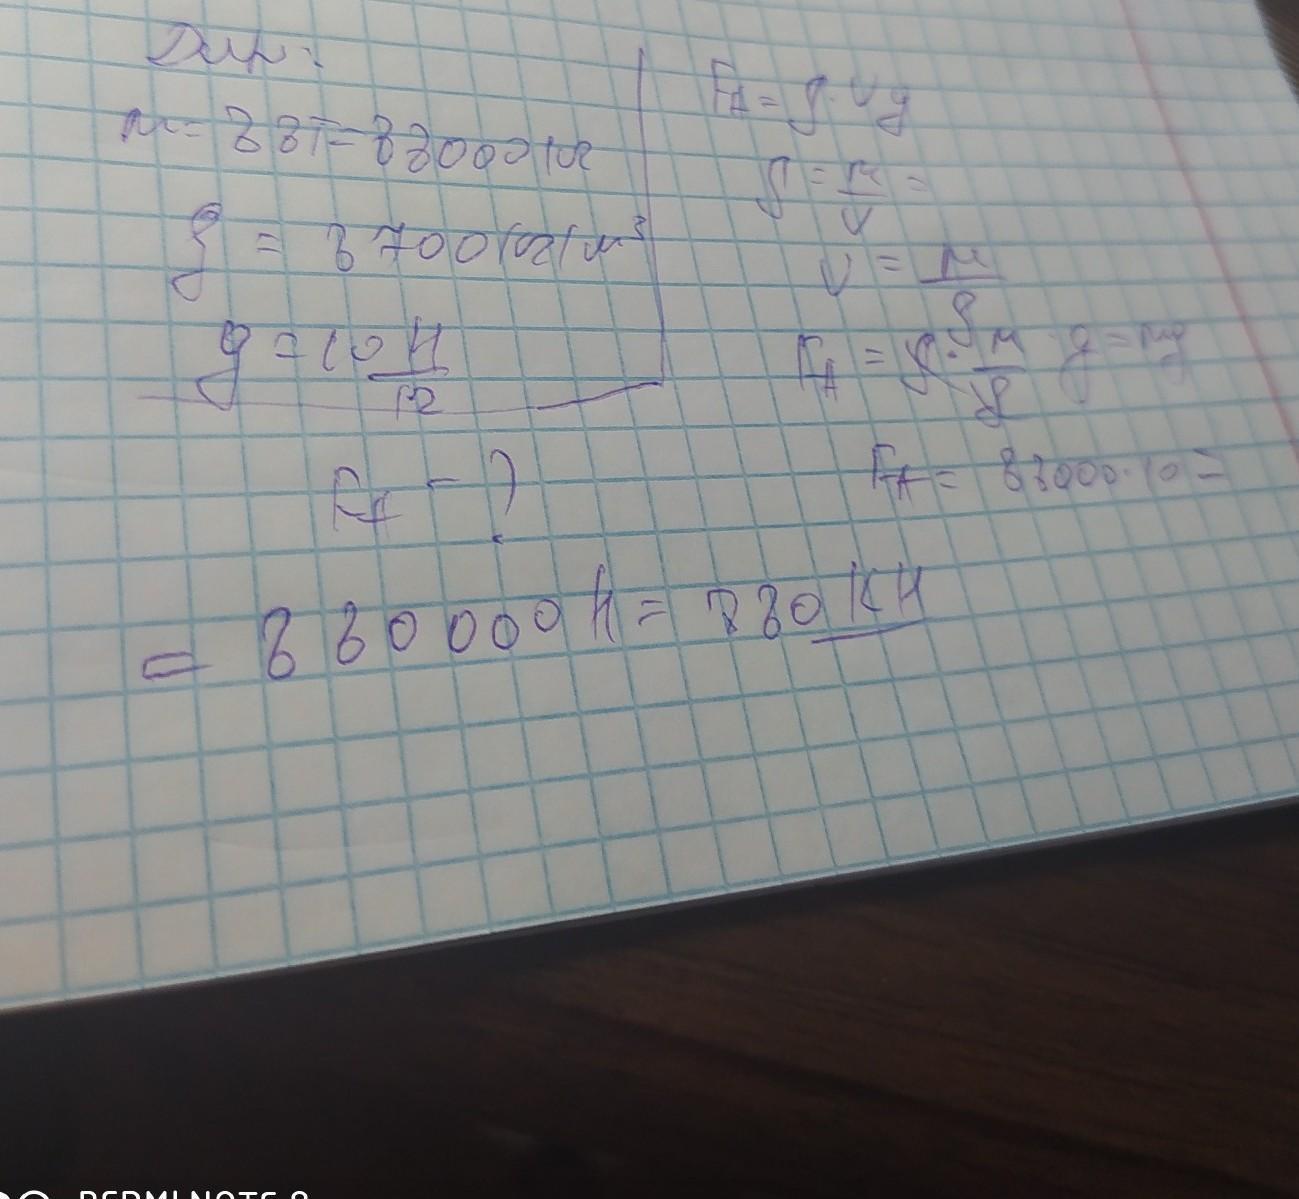 Дан:
m = 88т = 88000 кг
ρ = 8700 кг/м³
g = 10 Н/кг
F_A - ?
F_A = ρ·Vg
ρ = m/V =
V = m/ρ
F_A = ρ · m/ρ · g = mg
F_A = 88000·10 =
= 880000 Н = 880 КН
REDMI NOTE 8